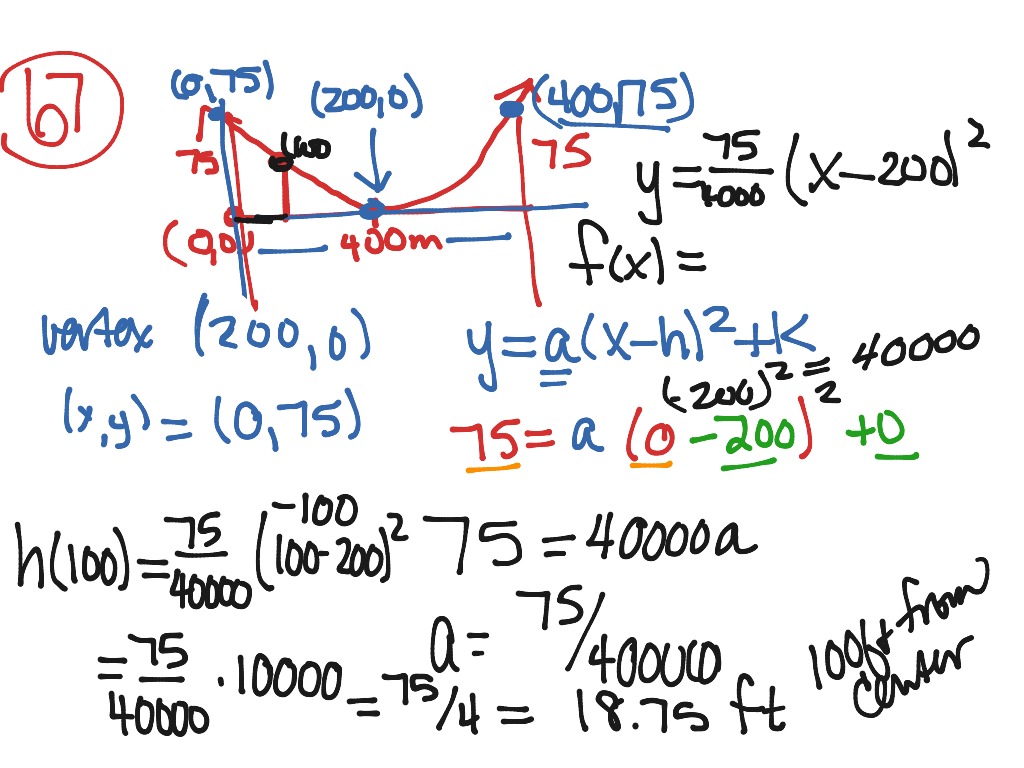 67
(0,75)
(200,0)
(400,75)
75
100
75
(0,0)
400m
y = 75/4000 (x-200)²
f(x) =
vertex (200,0)
y = a(x-h)² + K
(-200)² = 40000
(x,y) = (0,75)
75 = a (0 -200)² +0
h(100) = 75/40000 (100-200)²
-100
75 = 40000a
a = 75/40000
= 75/40000 · 10000 = 75/4 = 18.75 ft
100ft from
center